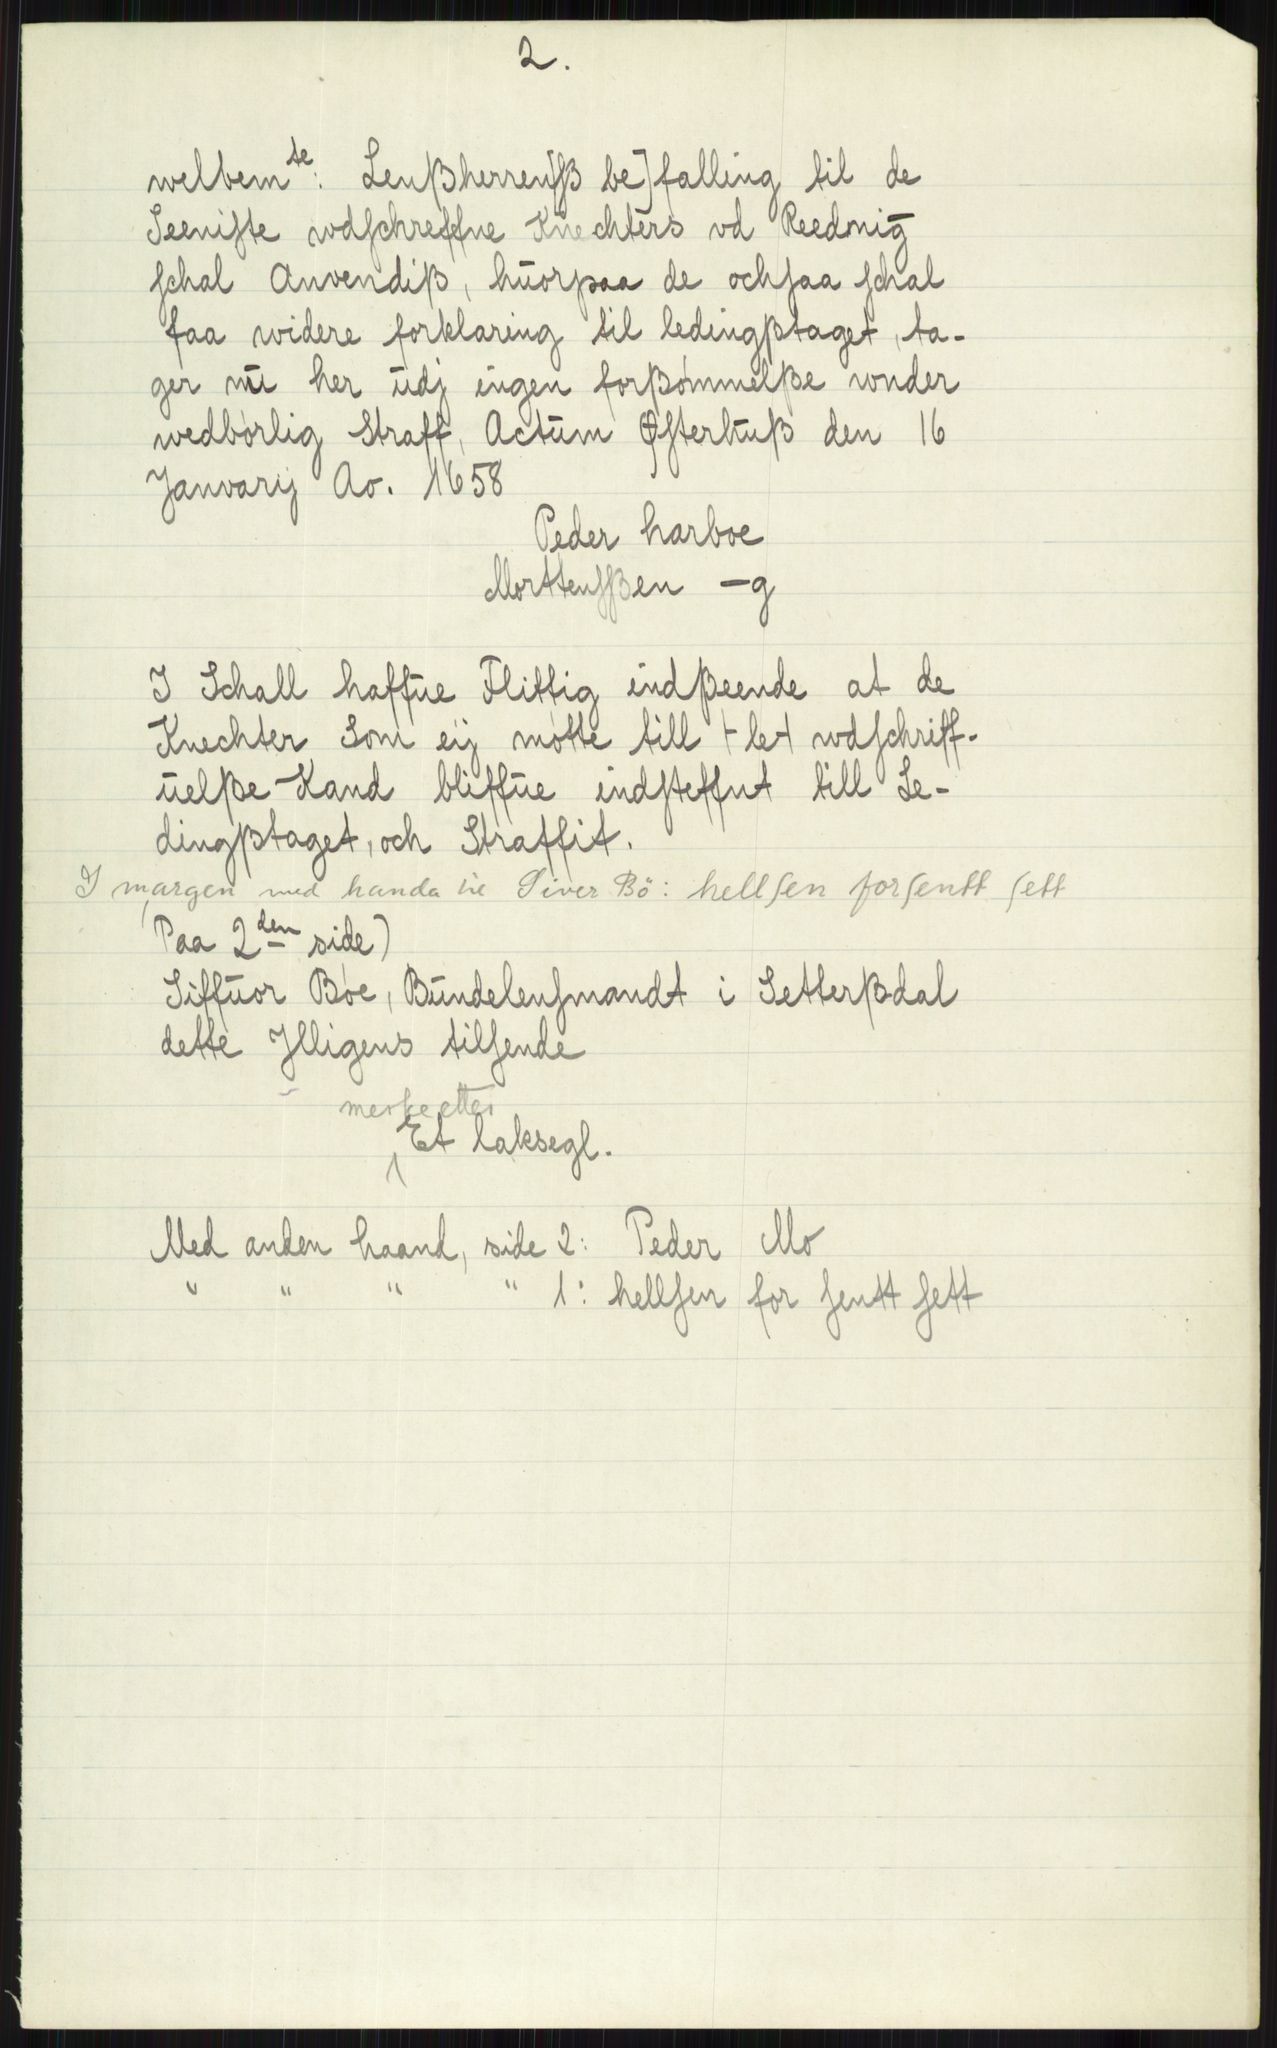 2.
welbem<sup>te</sup>: Lenßherren[ſß be]falling til de
Seeniſte wdſchreffne Knechters vd Reedniḡ
ſchal Anvendiß, hŭorpaa de ochſaa ſchal
faa widere forklaring til ledingßtaget, ta-
ger nŭ her ŭdj eŭgen forßømmelße wnder
wedbørlig Straff, Actŭm Øſterhŭß den 16
Janvarij Ao. 1658
Peder harboe
Morttenſßen —g
I Schall haffŭe Flittig indßeende at de
Knechter Som eij møtte till + let wdſchriff-
ŭelße Kand bliffŭe indſteffnt till Le-
dingßtaget, och Straffit.
I margen med handa te Siver Bö: hellſen forſentt ſett
(Paa 2<sup>den</sup> side)
Siffŭor Bøe, Bŭndelenſmandt i Setterßdal
dette Jlligens tilſende
merke etter
Et laksegl.
Med anden haand, side 2: Peder Mo
" " " " 1: hellſen for ſentt ſett